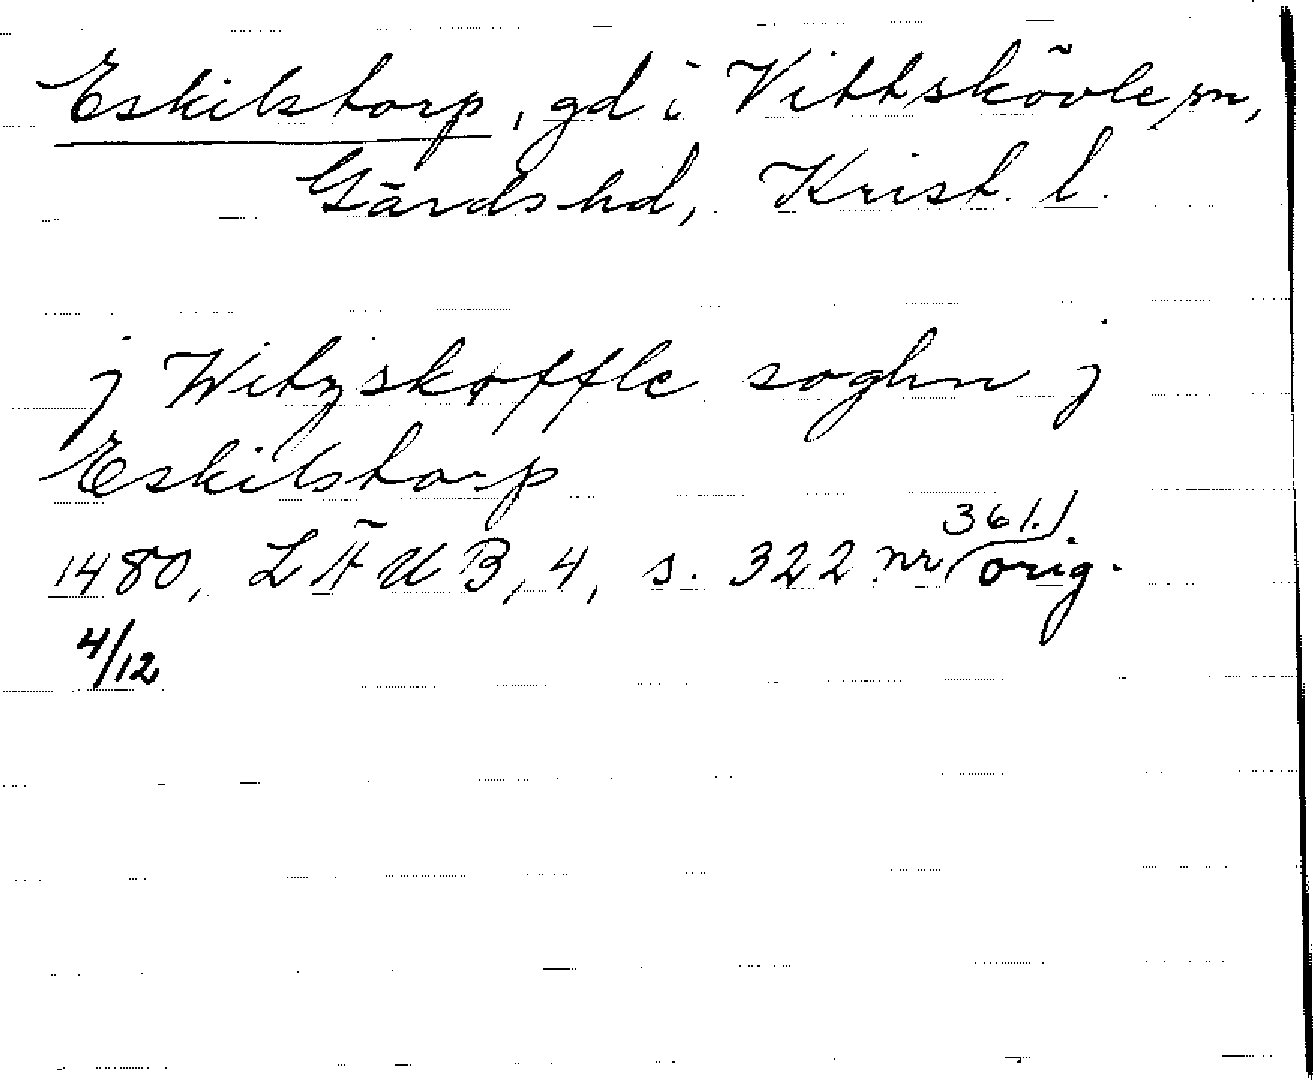 Eskilstorp, gd i Vittskövle sn,
Gärds hd, Krist. l.
j Witzskøffle soghn j
Eskilstorp
1480, LÄUB, 4, s. 322 nr 361. orig.
4/12